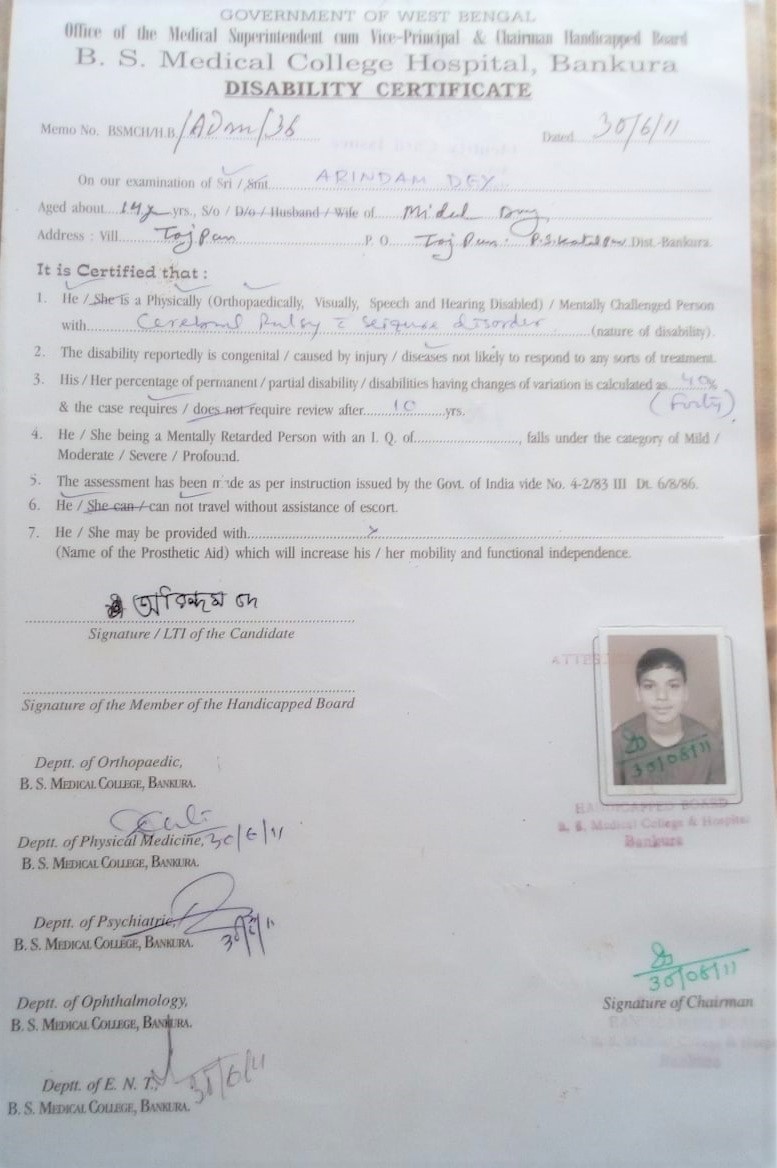 GOVERNMENT OF WEST BENGAL
Office of the Medical Superintendent cum Vice-Principal & Chairman Handicapped Board
B. S. Medical College Hospital, Bankura
DISABILITY CERTIFICATE
Memo No. BSMCH/H.B./ADm/36 Dated 30/6/11
On our examination of Sri / Smt. ARINDAM DEY
Aged about 14 y yrs., S/o / D/o / Husband / Wife of
Address : Vill. P. O. Dist.-Bankura.
It is Certified that :
1. He / She is a Physically (Orthopaedically, Visually, Speech and Hearing Disabled) / Mentally Challenged Person
with Cerebral Palsy seizure disorder (nature of disability).
2. The disability reportedly is congenital / caused by injury / diseases not likely to respond to any sorts of treatment.
3. His / Her percentage of permanent / partial disability / disabilities having changes of variation is calculated as 40%
& the case requires / does not require review after 10 yrs. (Forty)
4. He / She being a Mentally Retarded Person with an I. Q. of, falls under the category of Mild /
Moderate / Severe / Profound.
5. The assessment has been made as per instruction issued by the Govt. of India vide No. 4-2/83 III Dt. 6/8/86.
6. He / She can / can not travel without assistance of escort.
7. He / She may be provided with x
(Name of the Prosthetic Aid) which will increase his / her mobility and functional independence.
অরিন্দম দে
Signature / LTI of the Candidate
Signature of the Member of the Handicapped Board
Deptt. of Orthopaedic,
B. S. MEDICAL COLLEGE, BANKURA.
30/08/11
HANDICAPPED BOARD
B. S. Medical College & Hospital
Bankura
Deptt. of Physical Medicine, 30/6/11
B. S. MEDICAL COLLEGE, BANKURA.
Deptt. of Psychiatric,
B. S. MEDICAL COLLEGE, BANKURA.
30/6/11
30/06/11
Signature of Chairman
Deptt. of Ophthalmology,
B. S. MEDICAL COLLEGE, BANKURA.
Bankura
Deptt. of E. N. T., 30/6/11
B. S. MEDICAL COLLEGE, BANKURA.